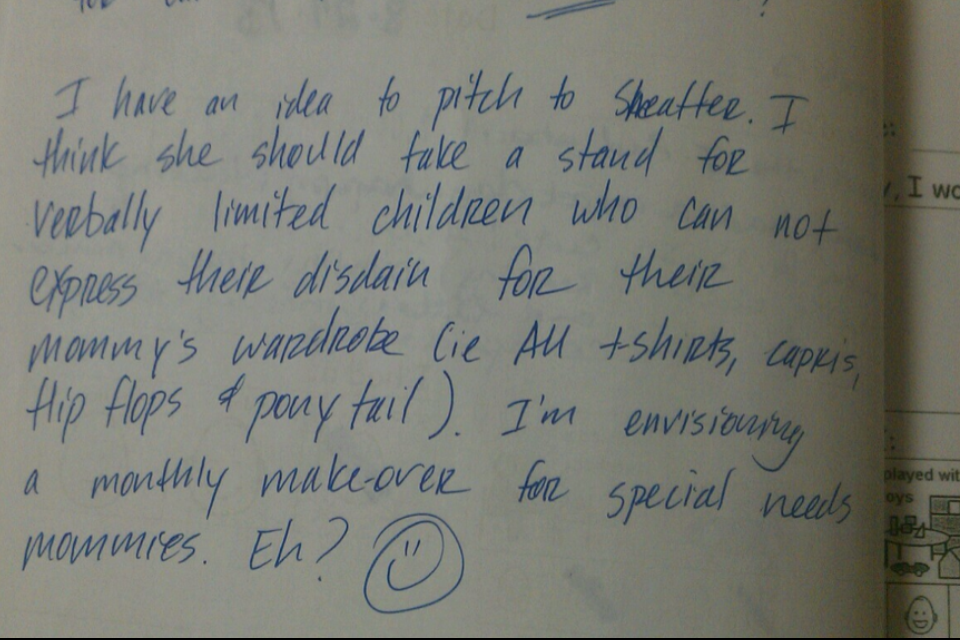 I have an idea to pitch to Sheatter. I
think she should take a stand for
verbally limited children who can not
express their disdain for their
mommy's wardrobe (ie All t-shirts, capris,
flip flops & pony tail). I'm envisioning
a monthly make-over for special needs
mommies. Eh?
I wo
played wit
oys